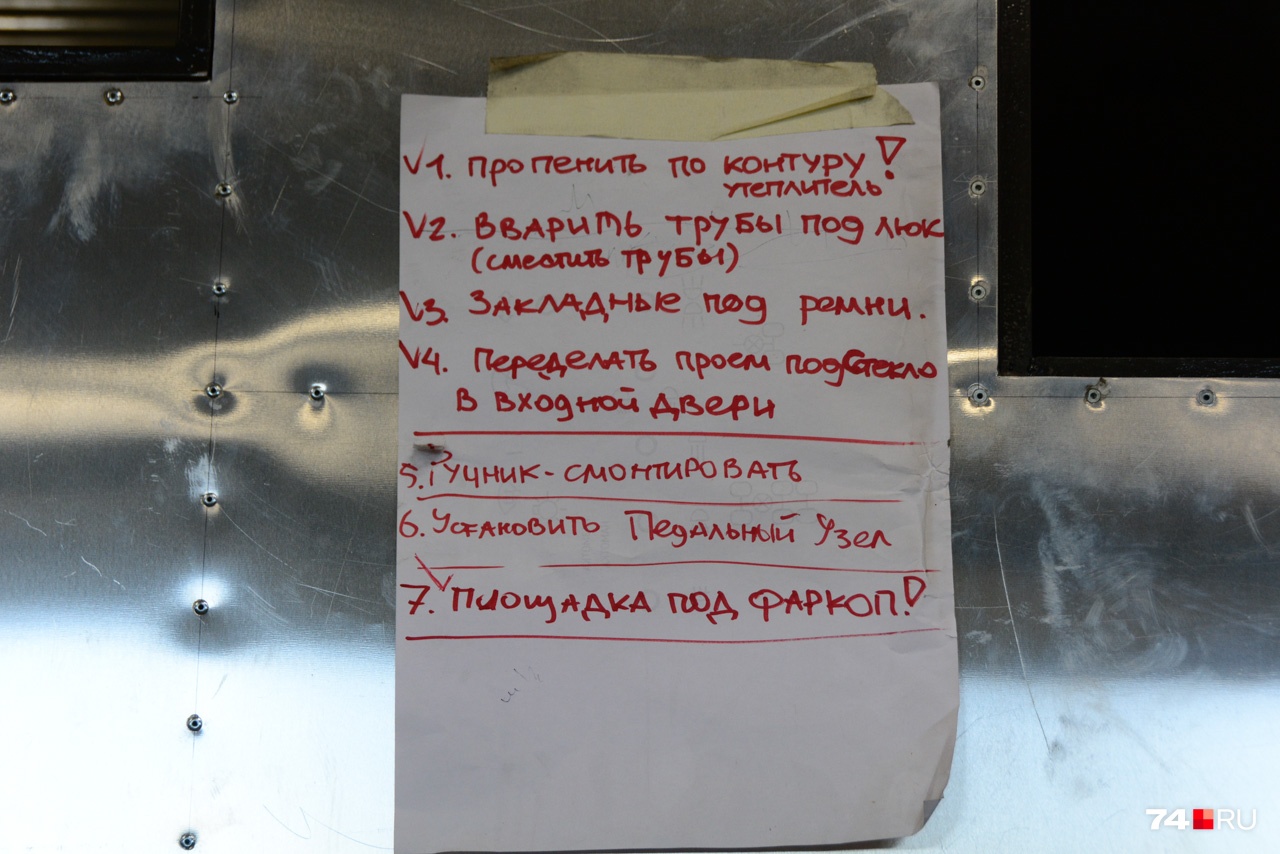 V1. Пропенить по контуру!
утеплитель
V2. Вварить трубы под люк
(сместить трубы)
V3. Закладные под ремни.
V4. Переделать проем под стекло
в входной двери
5. Ручник - смонтировать
6. Устаковить Педальный Узел
V 7. Площадка под фаркоп!
74.RU